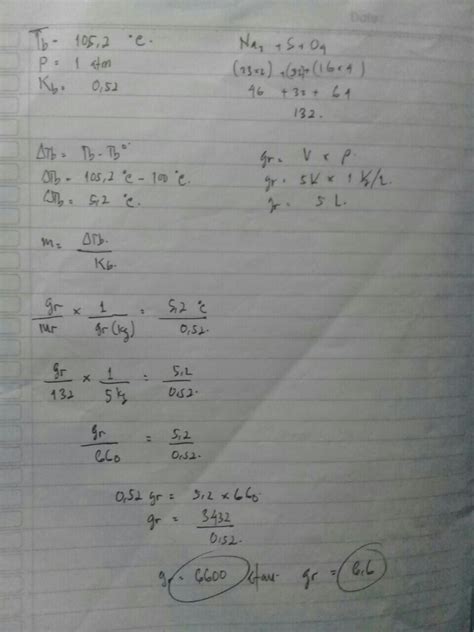 Tb = 105,2 °C.
P = 1 atm
Kb = 0,52
Na2 + S + O4
(23x2) + (32) + (16x4)
46 + 32 + 64
132.
ΔTb = Tb - Tb°
ΔTb = 105,2 °C - 100 °C.
ΔTb = 5,2 °C.
gr = V x P.
gr = 5 L x 1 kg/L
gr = 5 L.
m = ΔTb. / Kb.
gr / Mr x 1 / gr (kg) = 5,2 °C / 0,52.
gr / 132 x 1 / 5 kg = 5,2 / 0,52.
gr / 660 = 5,2 / 0,52.
0,52 gr = 5,2 x 660.
gr = 3432 / 0,52.
gr = 6600 atau gr = 6,6